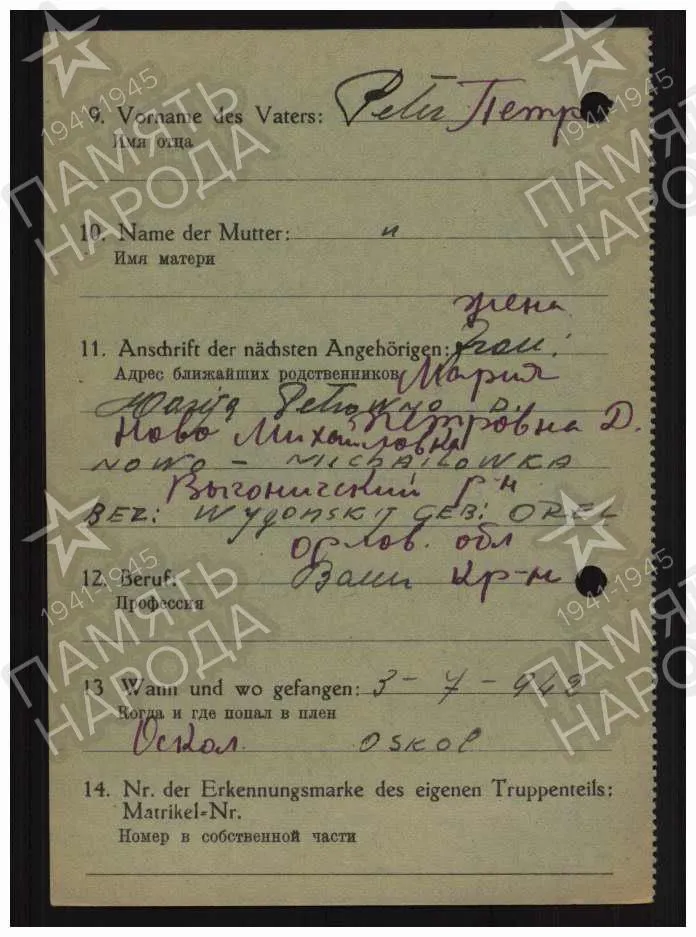 9. Vorname des Vaters: Peter Петр
Имя отца
10. Name der Mutter: "
Имя матери
жена
11. Anschrift der nächsten Angehörigen: Frau:
Адрес ближайших родственников Мария
Marija Petrowna D.
Петровна Д.
Ново Михайловка
NOWO - MICHAILOWKA
Выгоничский р-н
BEZ: WYGONSKIJ GEB: OREL
орлов. обл
12. Beruf: Bauer кр-н
Профессия
13 Wann und wo gefangen: 3-7-942
Когда и где попал в плен
Оскол. OSKOL
14. Nr. der Erkennungsmarke des eigenen Truppenteils:
Matrikel-Nr.
Номер в собственной части
1941-1945
ПАМЯТЬ
НАРОДА
1941-1945
ПАМЯТЬ
НАРОДА
1941-1945
ПАМЯТЬ
НАРОДА
1941-1945
ПАМЯТЬ
НАРОДА